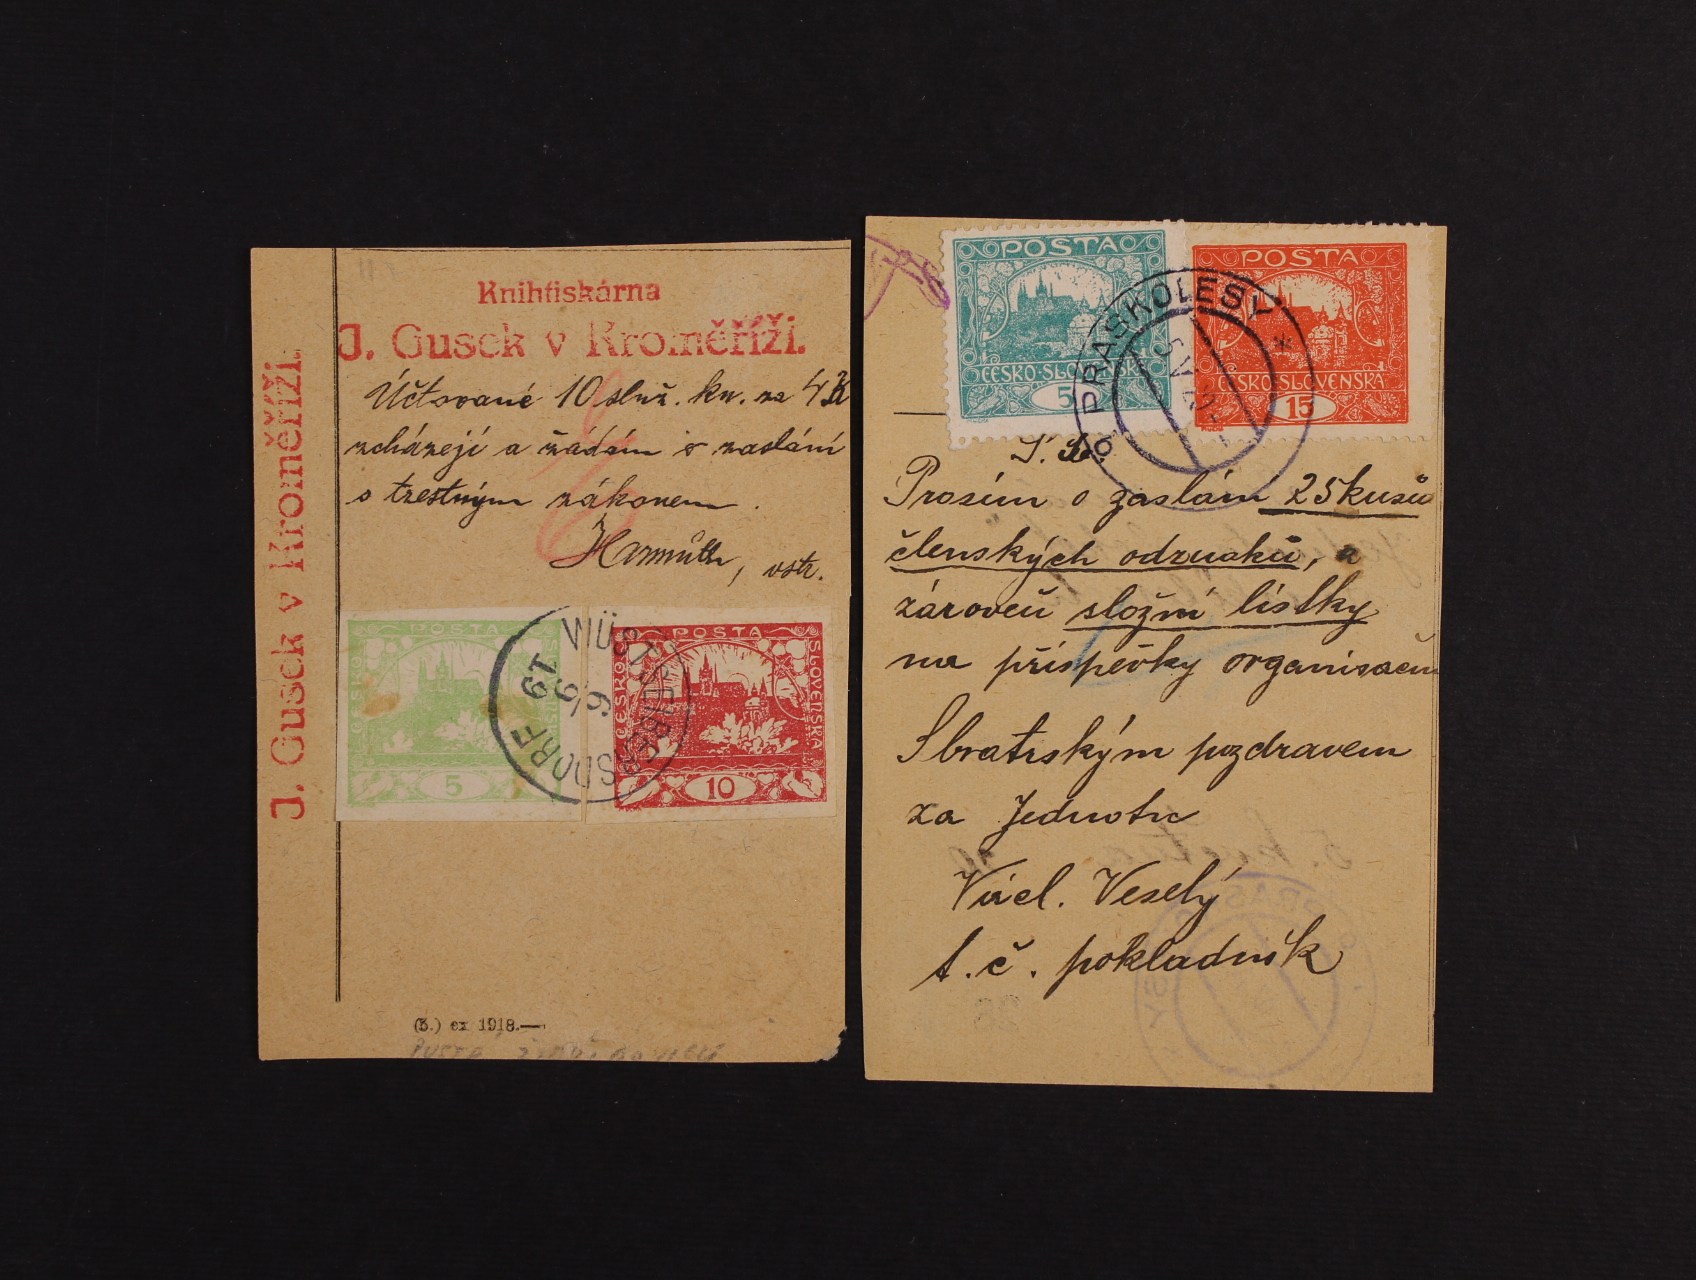 Knihtiskárna
J. Gusek v Kroměříži.
J. Gusek v Kroměříži.
Účtované 10 služ. kn. za 4 K
scházejí a žádám o zaslání
s trestným zákonem.
, vstr.
POSTA
ČESKO
SLOVENSKÁ
5
POSTA
ČESKO
SLOVENSKÁ
10
WÜSTSEIBERSDORF
6/6
19
(3.) ex 1918.—
POSTA
ČESKO-SLOVENSKÁ
5
POSTA
ČESKO-SLOVENSKÁ
15
PRASKOLESY
Prosím o zaslání 25 kusů
členských odznaků, a
zároveň složní lístky
na příspěvky organisační
S bratrským pozdravem
za Jednotu
Václ. Veselý
t. č. pokladník